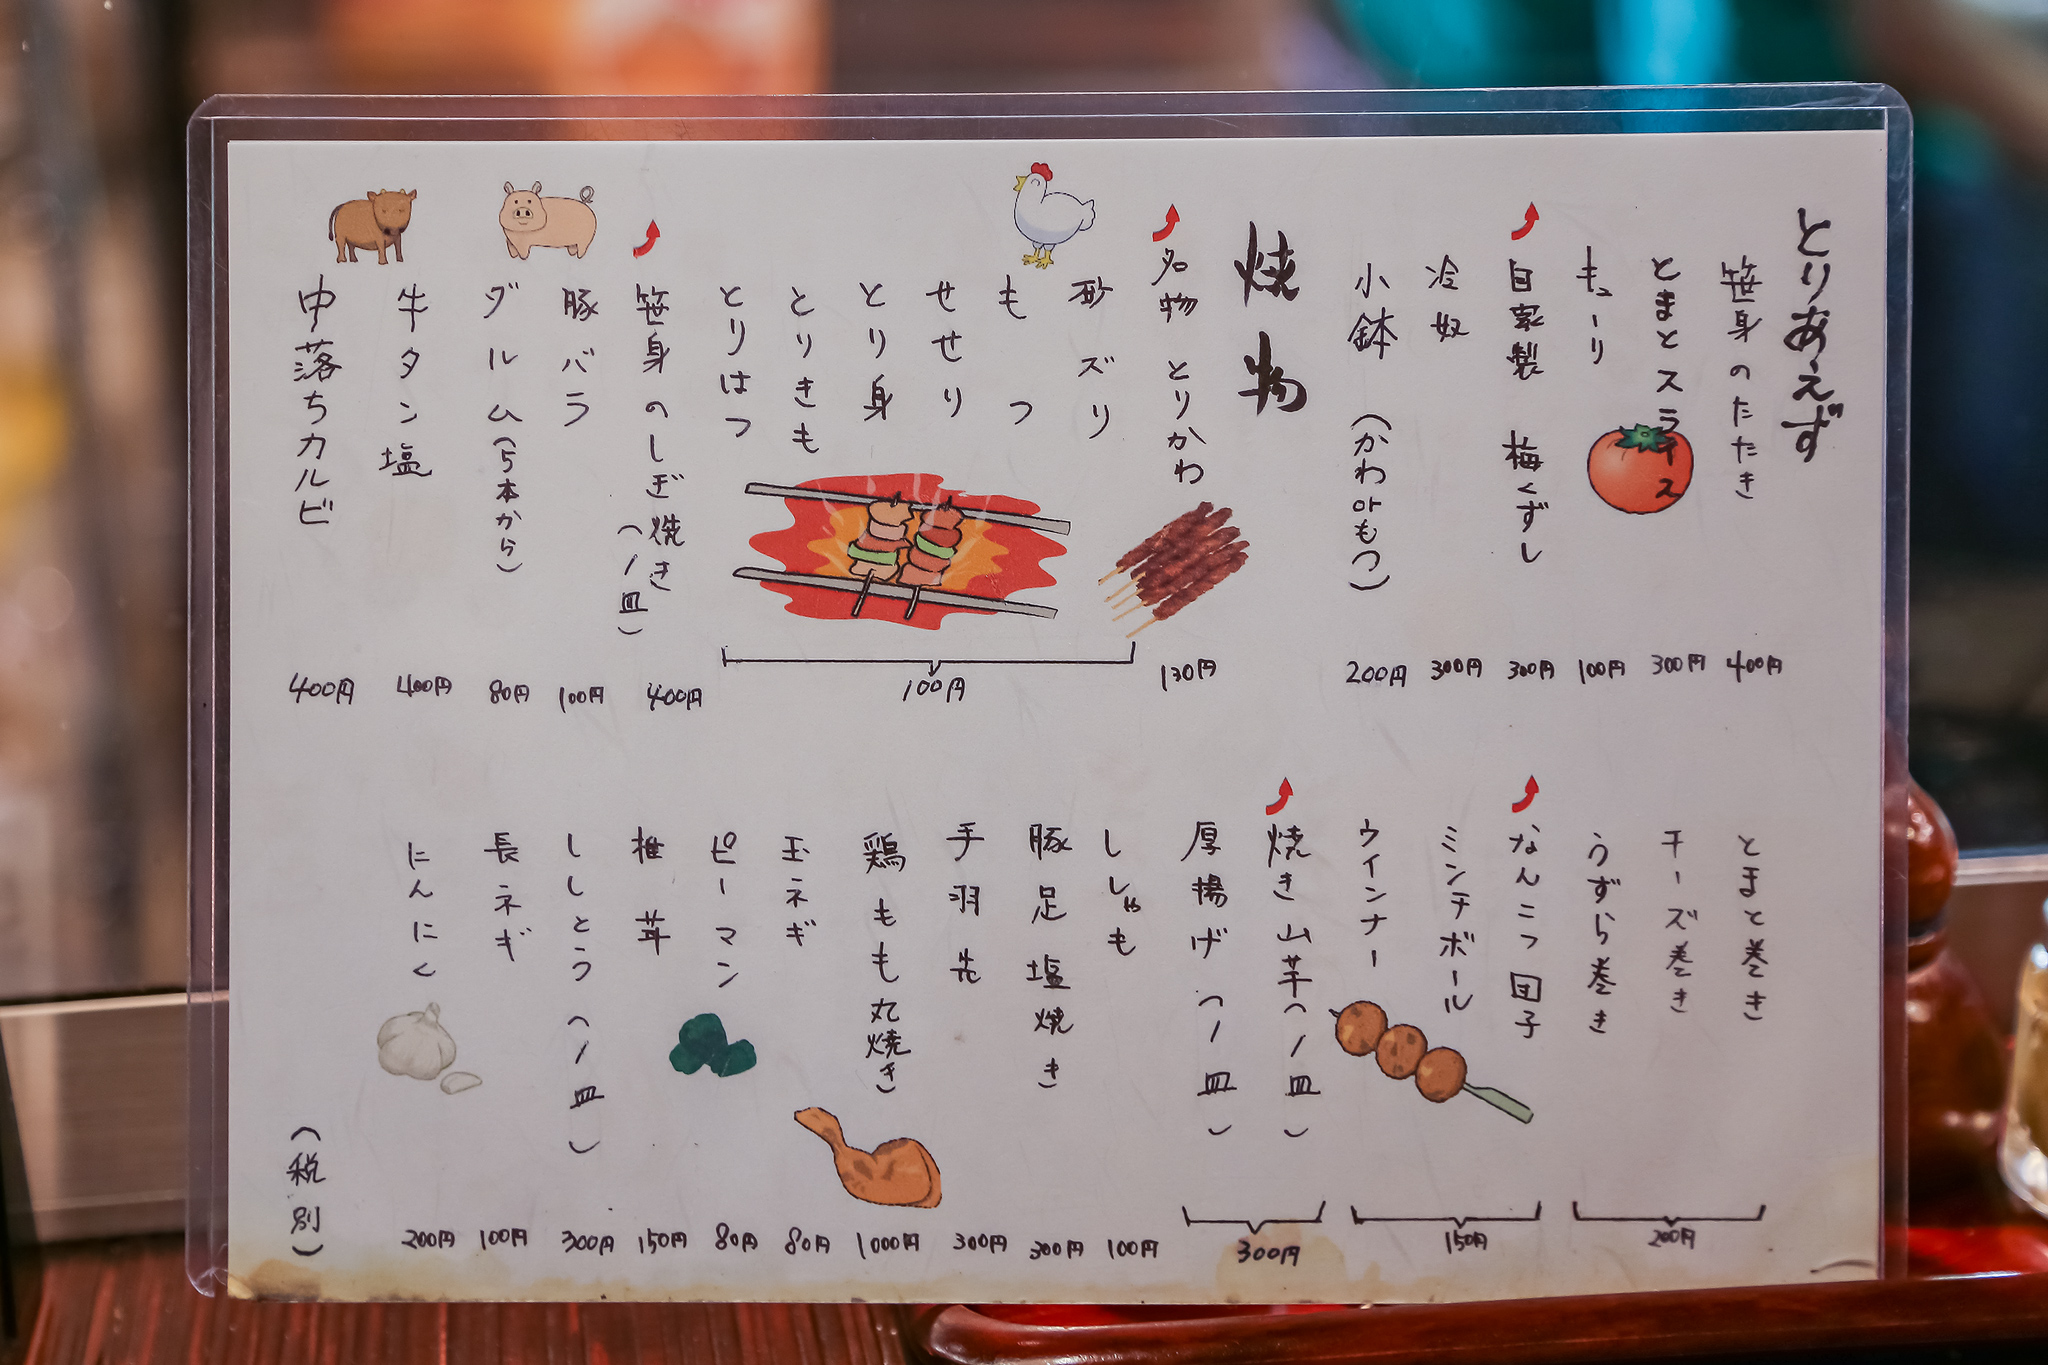 とりあえず
笹身のたたき 400円
とまとスライス 300円
キューリ 100円
自家製 梅くずし 300円
冷奴 300円
小鉢 (かわorもつ) 200円
焼物
名物 とりかわ 130円
砂ズリ
もつ
せせり
とり身
とりきも
とりはつ
100円
笹身のしぎ焼き
(一皿) 400円
豚バラ 100円
ダルム(5本から) 80円
牛タン塩 400円
中落ちカルビ 400円
とまと巻き
チーズ巻き
うずら巻き
200円
なんこつ団子
ミンチボール
ウインナー
150円
焼き山芋(一皿)
厚揚げ(一皿)
300円
ししゃも 100円
豚足塩焼き 300円
手羽先 300円
鶏もも丸焼き 1000円
玉ネギ 80円
ピーマン 80円
椎茸 150円
ししとう(一皿) 300円
長ネギ 100円
にんにく 200円
(税別)